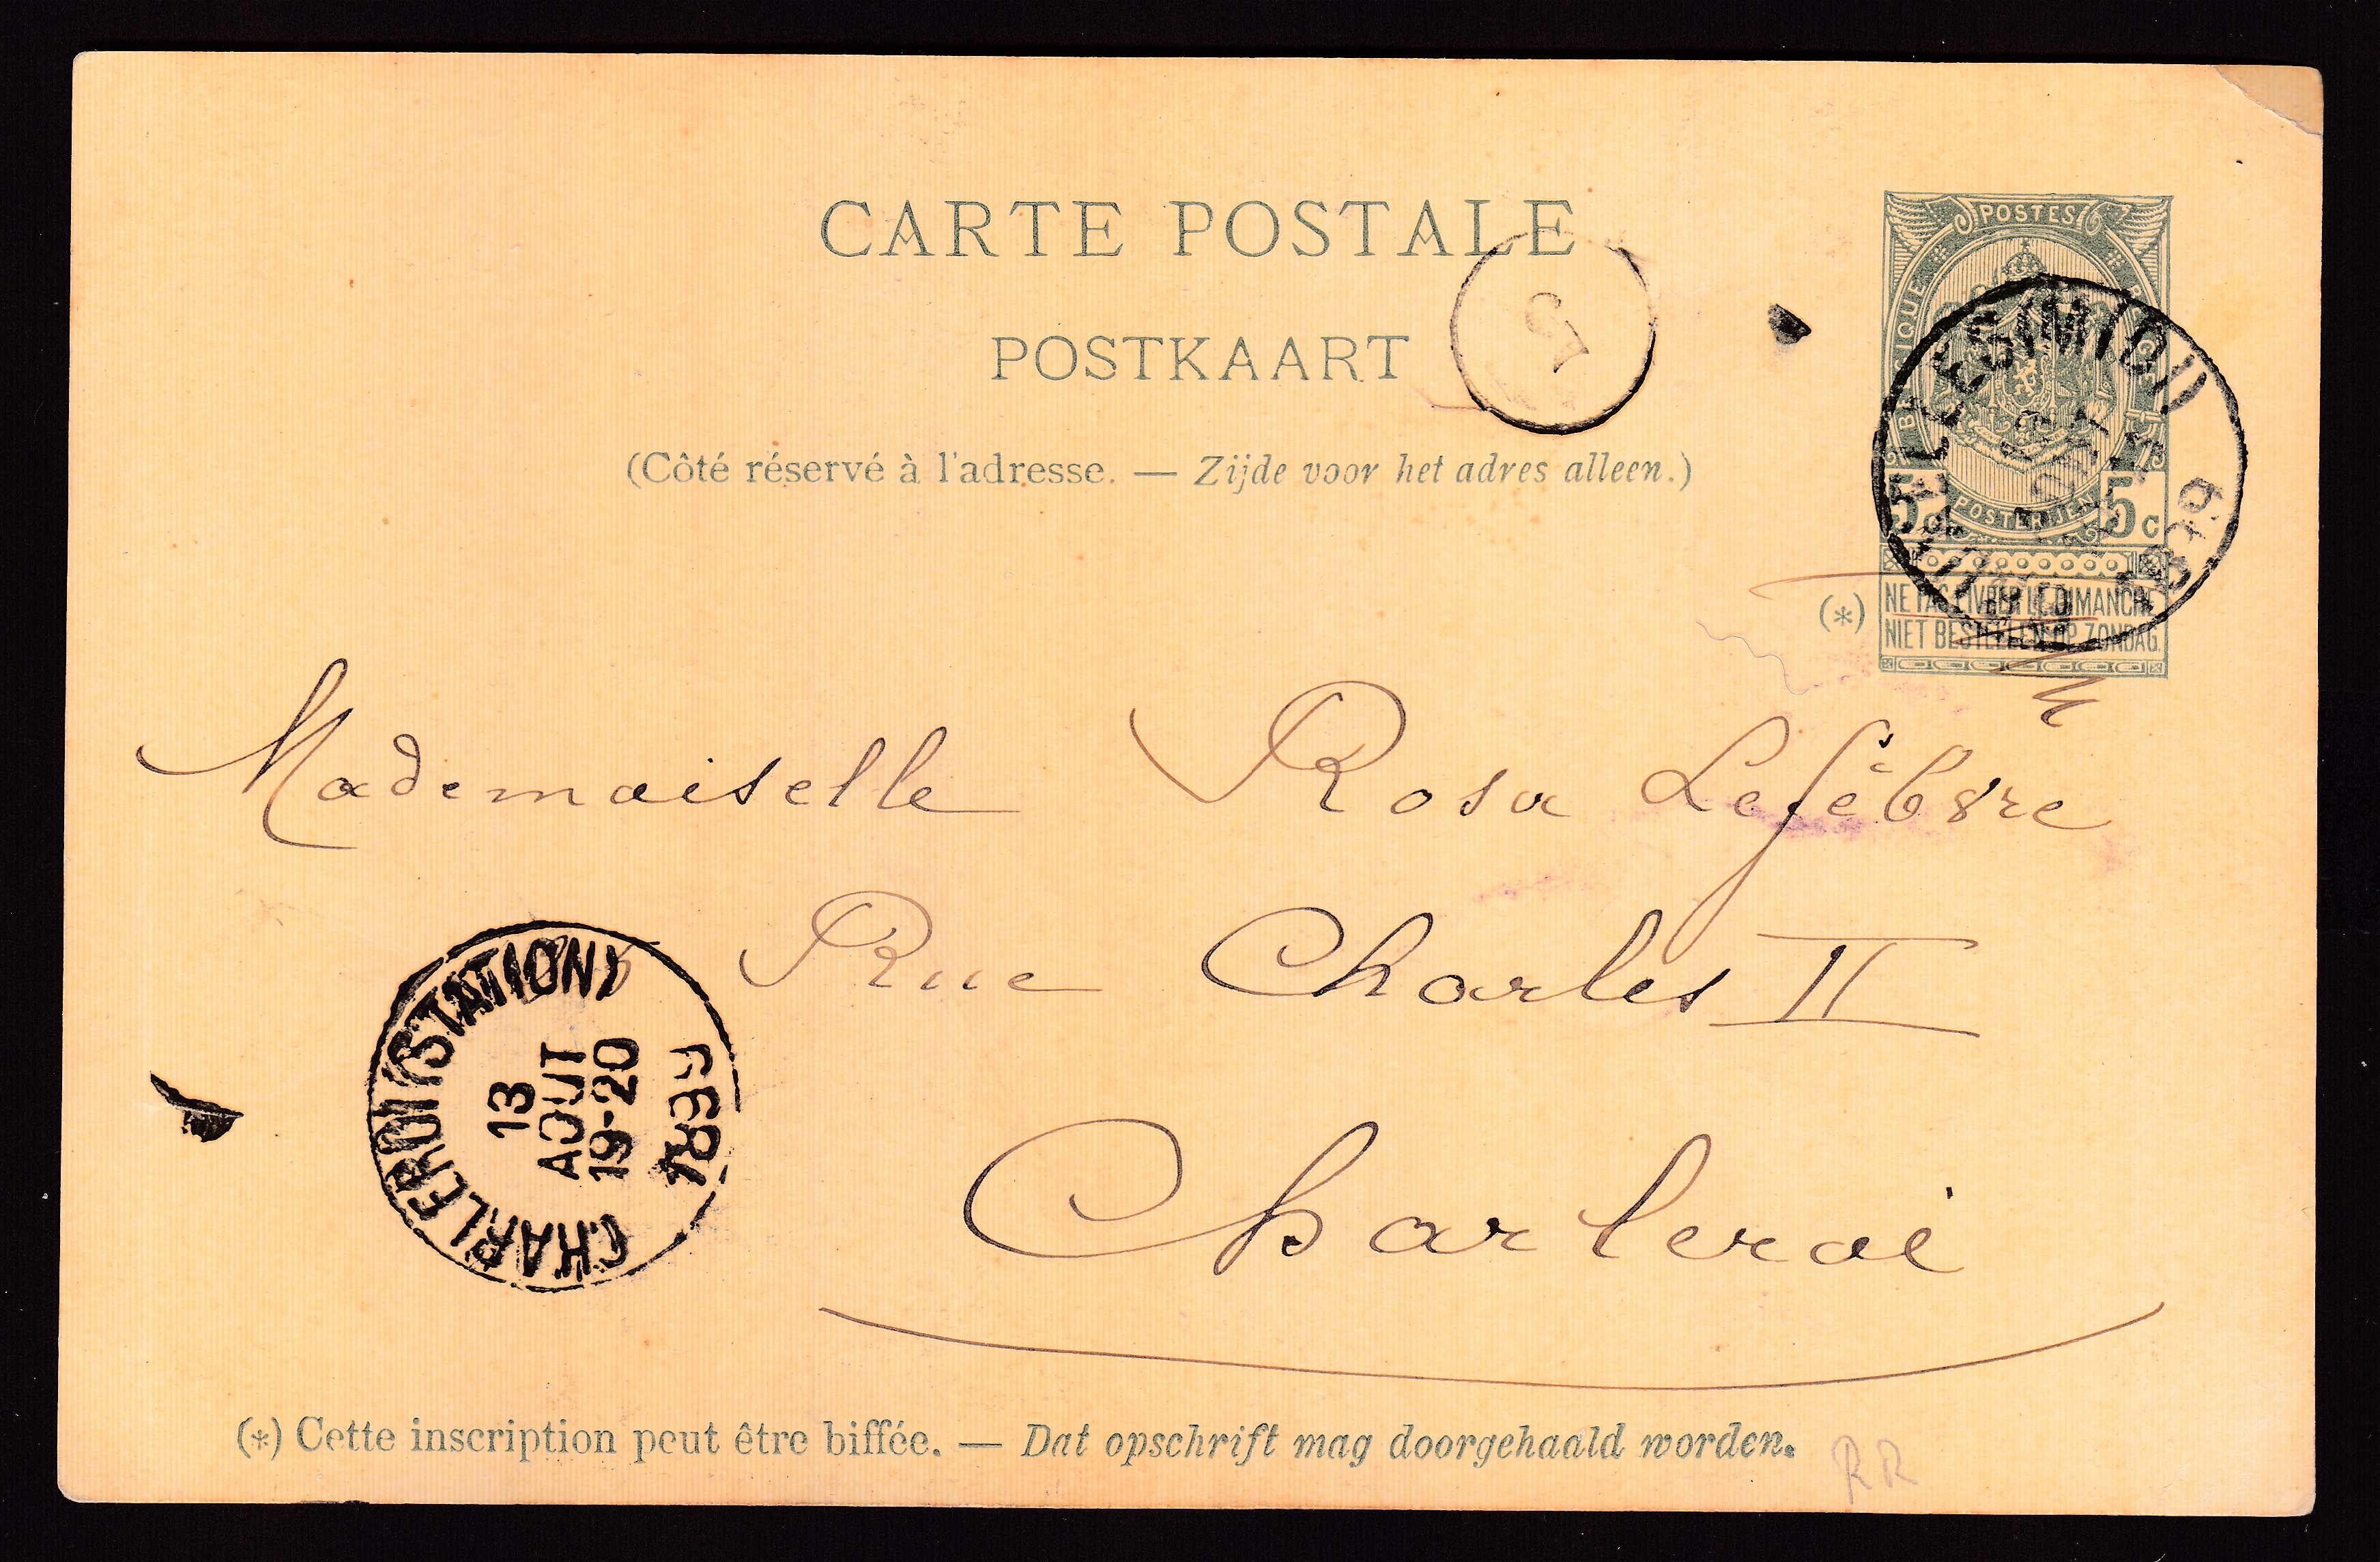 CARTE POSTALE
POSTKAART
(Côté réservé à l'adresse. — Zijde voor het adres alleen.)
POSTES
BELGIQUE
POSTERIJEN
5c 5c
(*) NE PAS LIVRER LE DIMANCHE
NIET BESTELLEN OP ZONDAG.
BRUXELLES (MIDI)
5
Mademoiselle Rosa Lefèbvre
Rue Charles II
Charleroi
CHARLEROI (STATION)
13
AOUT
19-20
1899
(*) Cette inscription peut être biffée. — Dat opschrift mag doorgehaald worden.
RR